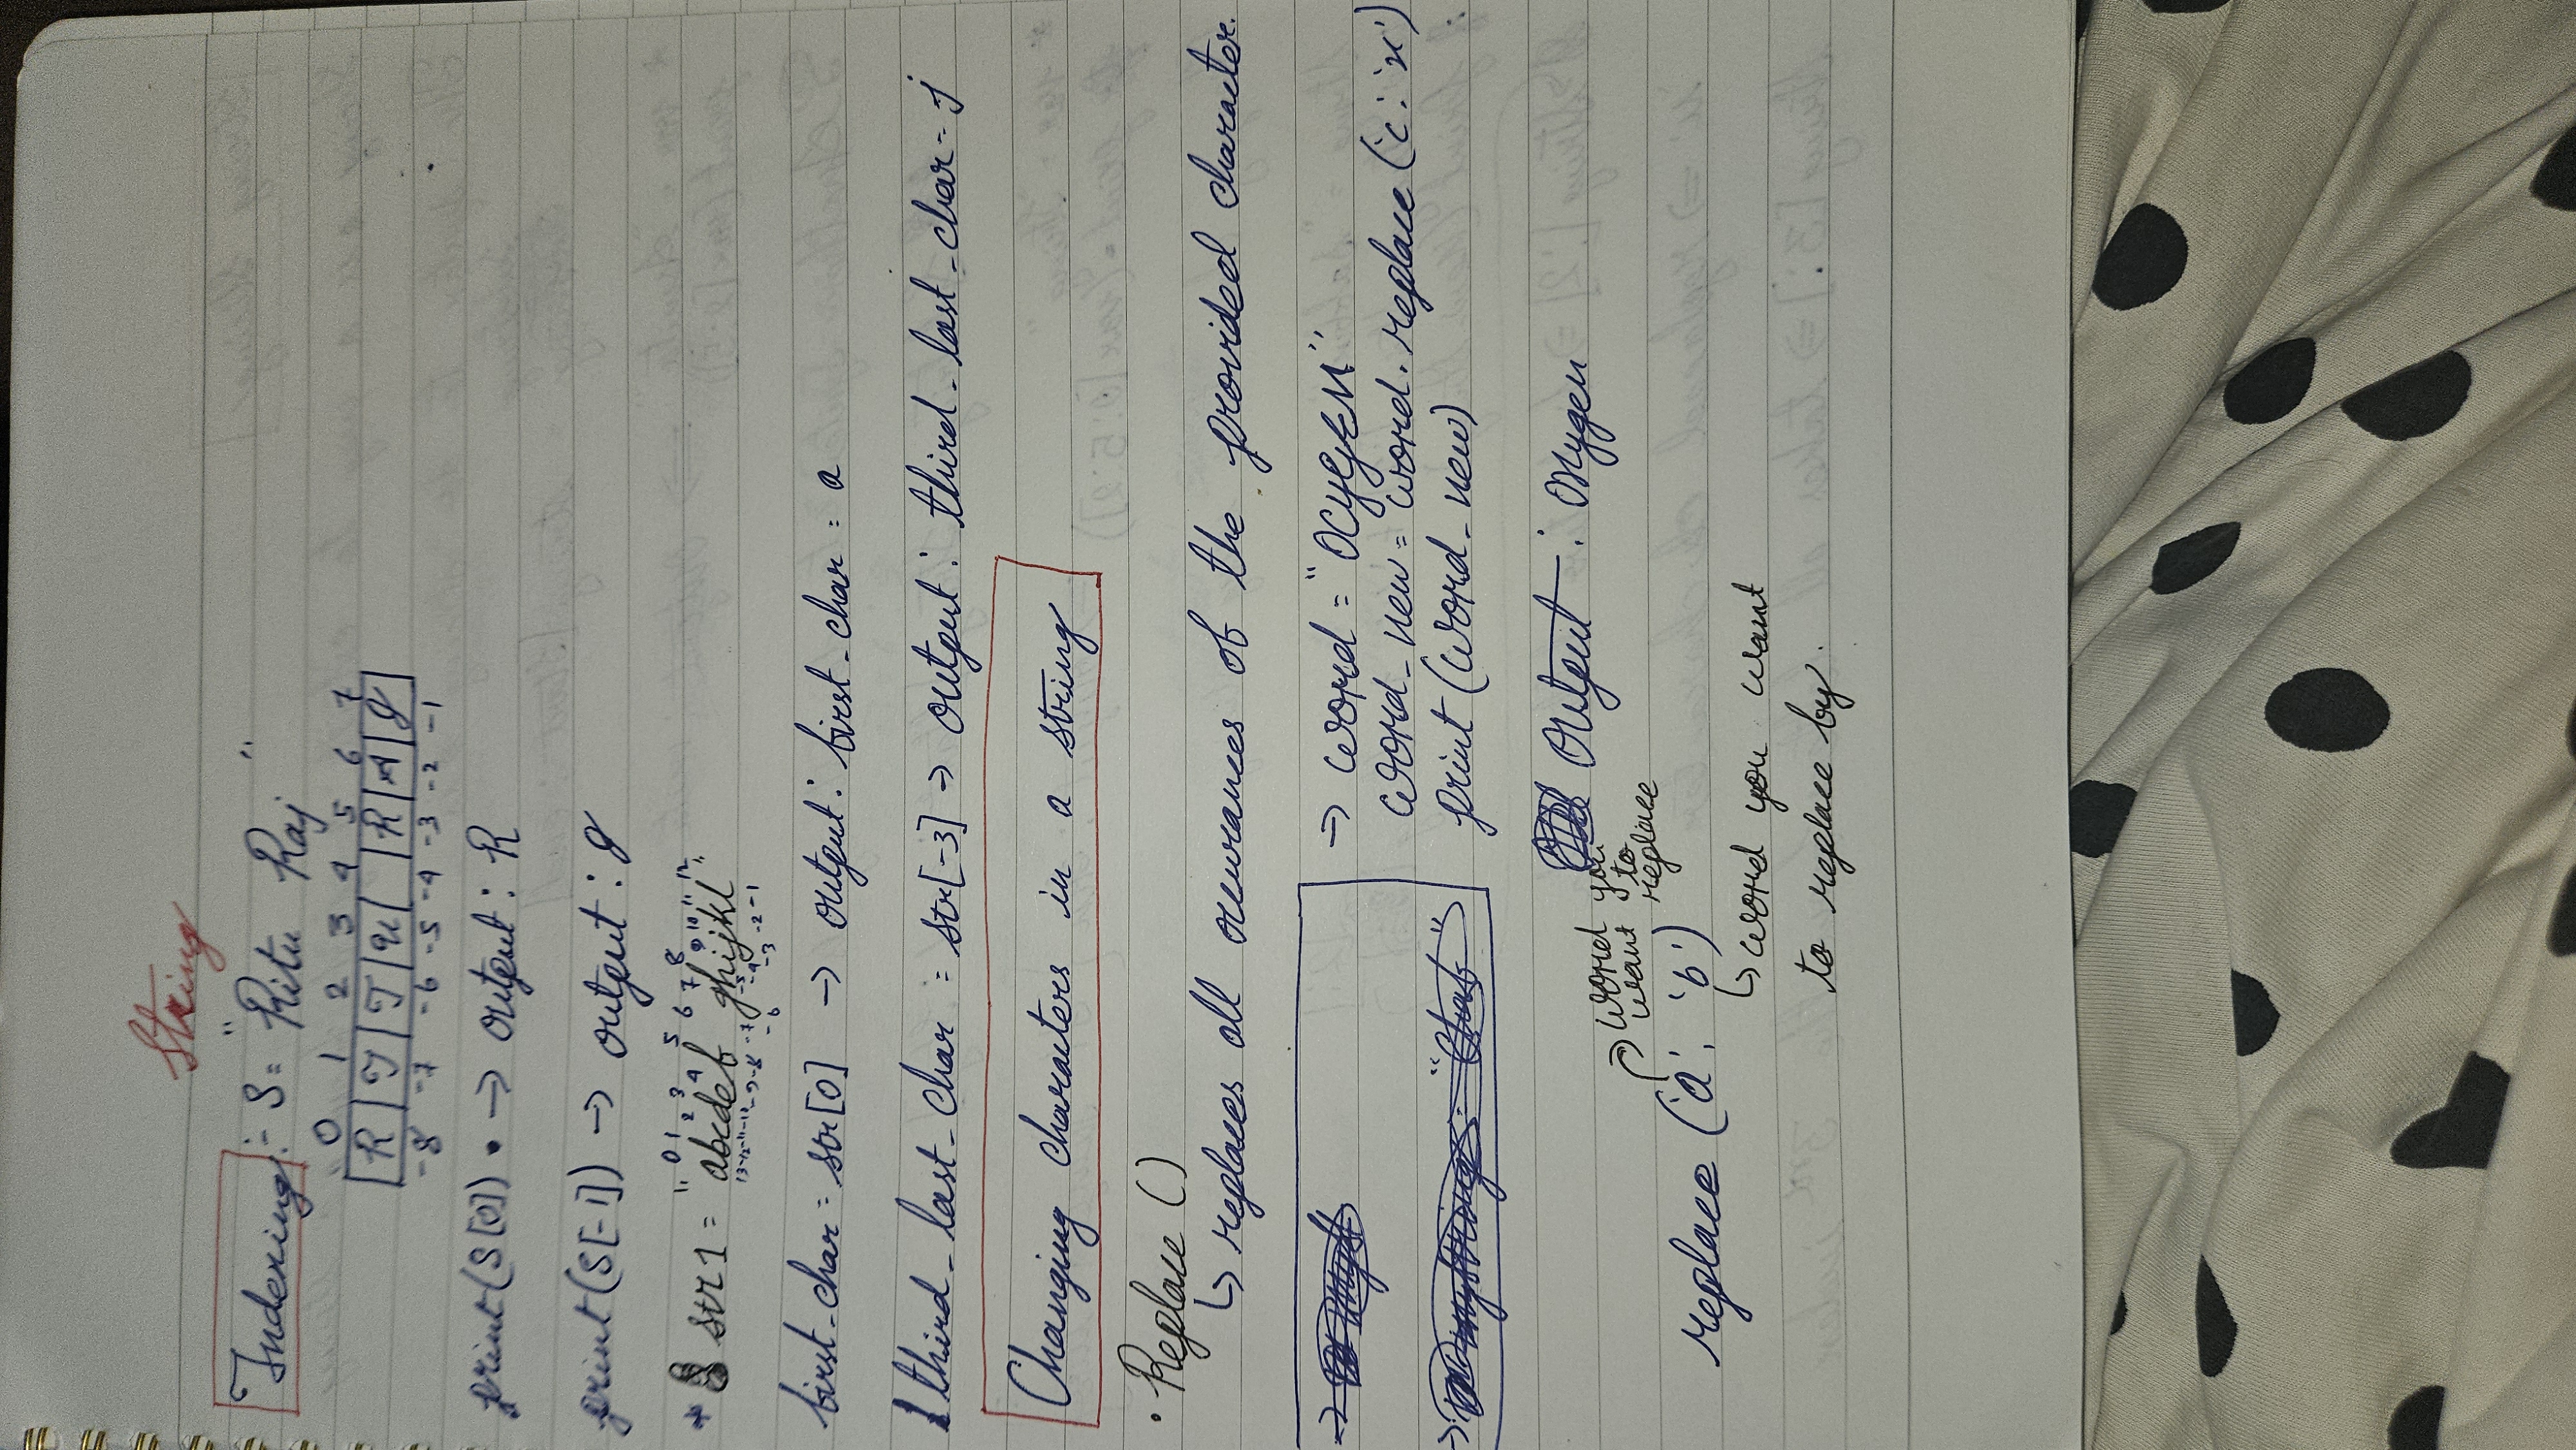 String
Indexing :- S = "Ritu Raj"
0 1 2 3 4 5 6 7
R I T U R A J
-8 -7 -6 -5 -4 -3 -2 -1
print(S[0]) • → output : R
print(S[-1]) → output : J
0 1 2 3 4 5 6 7 8 9 10 11 12
* str1 = "abcdef ghijkl"
-13 -12 -11 -10 -9 -8 -7 -6 -5 -4 -3 -2 -1
first_char = str[0] → output : first_char = a
third_last_char = str[-3] → output : third_last_char = j
Changing characters in a string
• Replace ()
↳ replaces all occurances of the provided character.
→ word = "OCYGEN"
word_new = word.replace('c': 'x')
print(word_new)
Output : Oxygen
→ word you
want to
replace
replace ('a': 'b')
↳ word you want
to replace by.